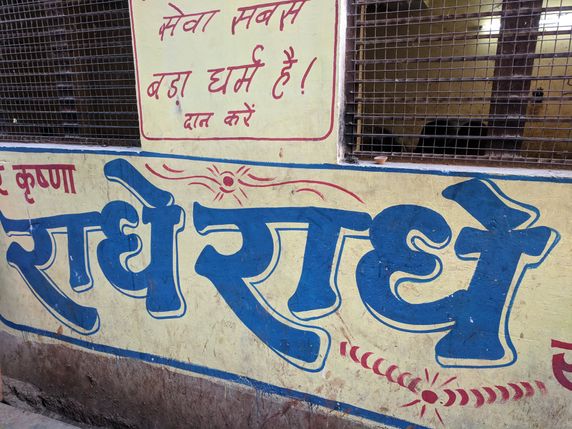 सेवा सबसे
बड़ा धर्म है!
दान करें
कृष्णा
राधे राधे